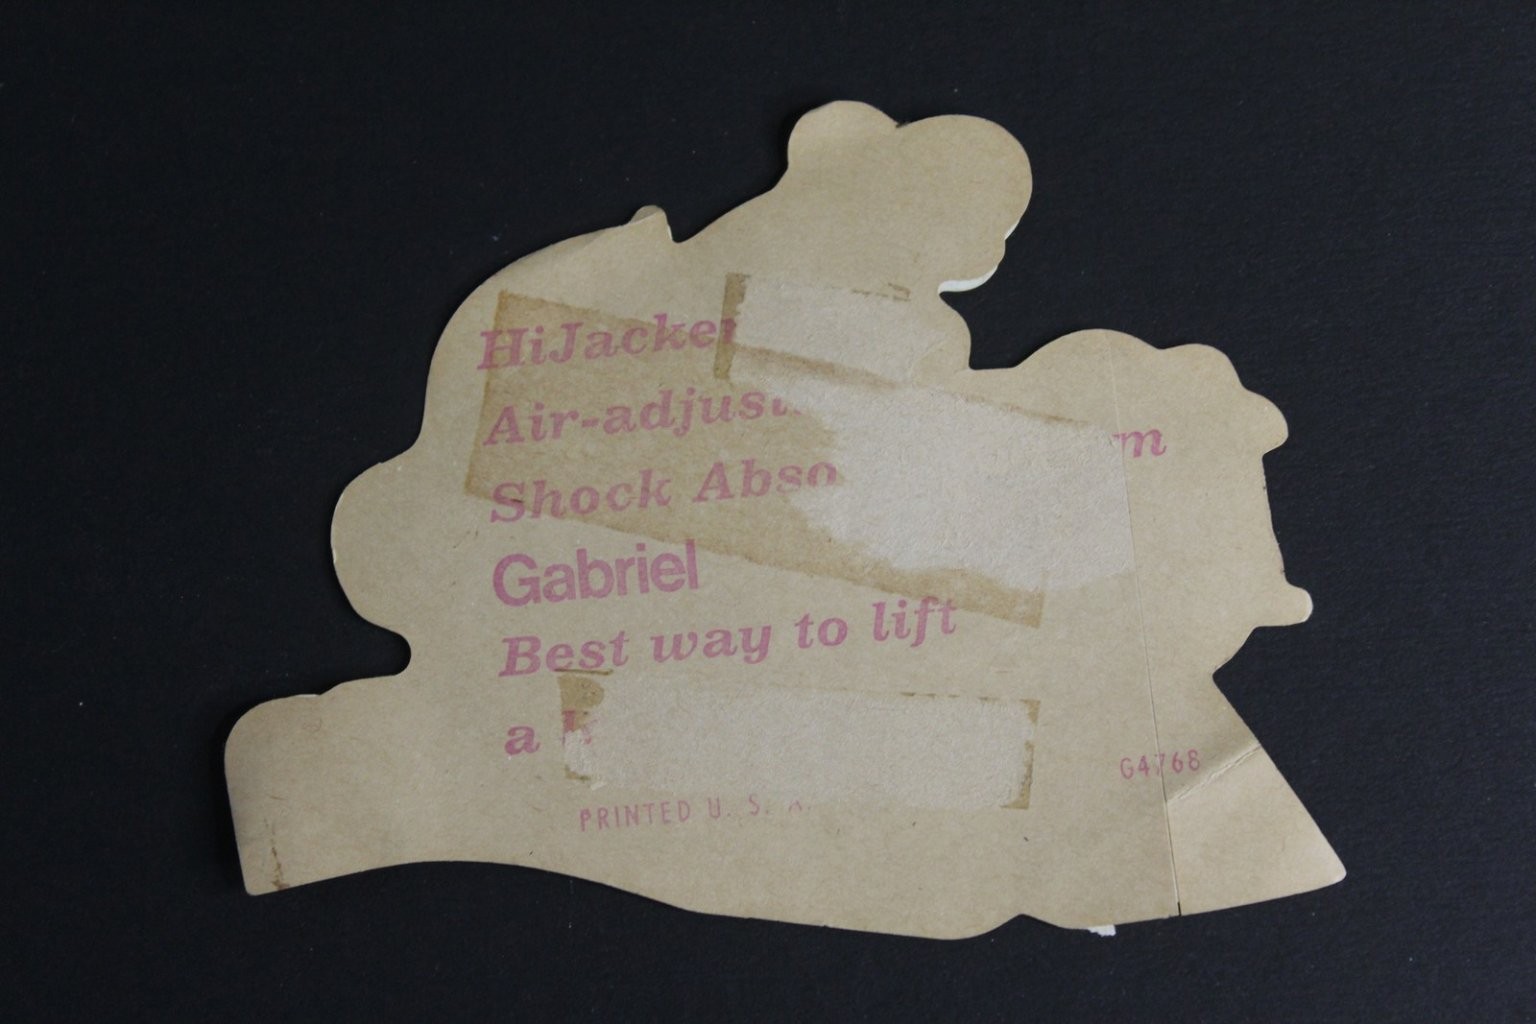 HiJacker
Air-adjust
Shock Abso
Gabriel
Best way to lift
a
PRINTED U. S. A.
G4768